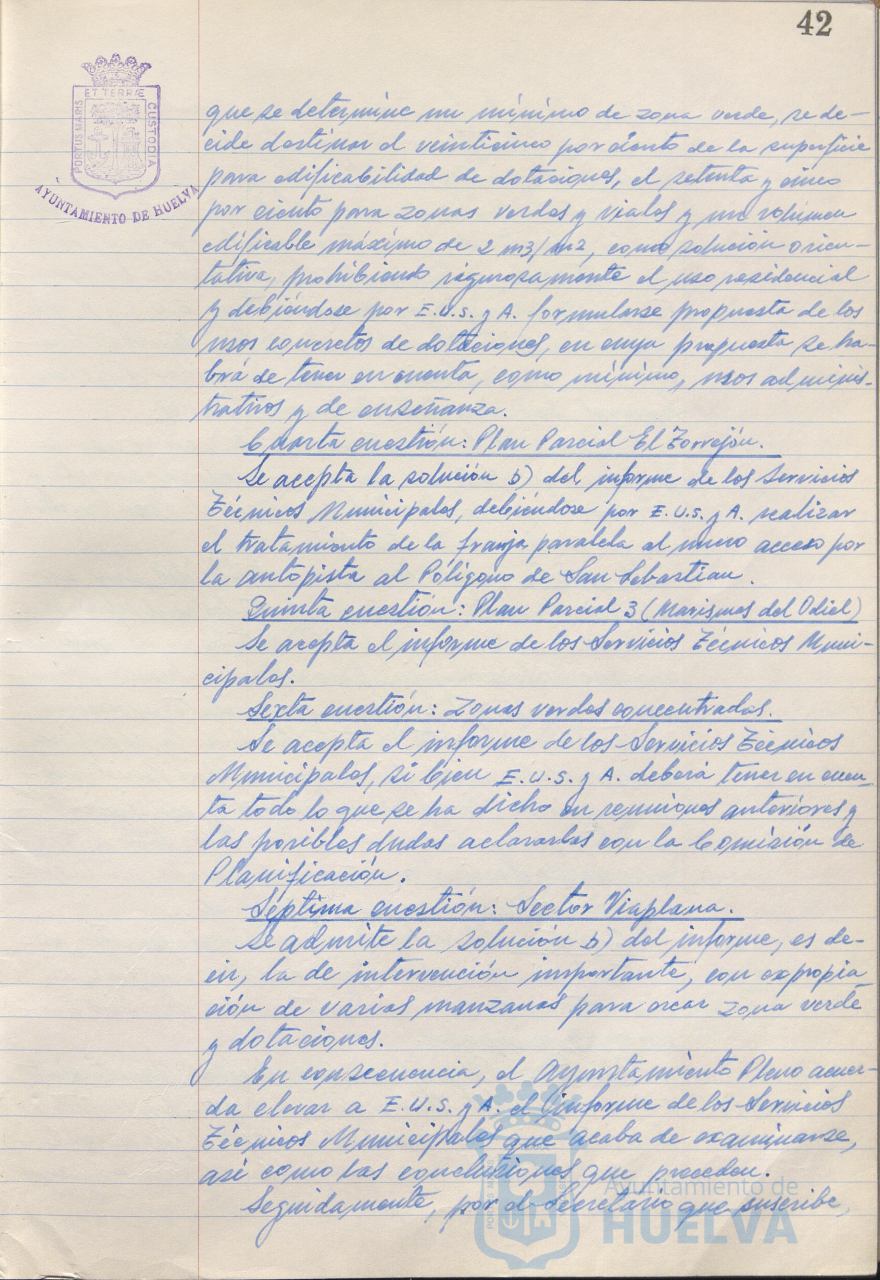 42
ET TERRÆ
PORTUS MARIS
CUSTODIA
AYUNTAMIENTO DE HUELVA
que se determine un mínimo de zona verde, se de-
cide destinar el veinticinco por ciento de la superficie
para edificabilidad de dotaciones, el setenta y cinco
por ciento para zonas verdes y viales y un volúmen
edificable máximo de 2 m3/m2, como solución orien-
tativa, prohibiendo rigurosamente el uso residencial
y debiéndose por E.U.S. y A. formularse propuesta de los
usos concretos de dotaciones, en cuya propuesta se ha-
brá de tener en cuenta, como mínimo, usos adminis-
trativos y de enseñanza.
Cuarta cuestión: Plan Parcial El Torrejón.
Se acepta la solución b) del informe de los Servicios
Técnicos Municipales, debiéndose por E.U.S. y A. realizar
el tratamiento de la franja paralela al nuevo acceso por
la autopista al Polígono de San Sebastian.
Quinta cuestión: Plan Parcial 3 (Marismas del Odiel)
Se acepta el informe de los Servicios Técnicos Muni-
cipales.
Sexta cuestión: Zonas verdes concentradas.
Se acepta el informe de los Servicios Técnicos
Municipales, si bien E.U.S. y A. deberá tener en cuen-
ta todo lo que se ha dicho en reuniones anteriores y
las posibles dudas aclararlas con la Comisión de
Planificación.
Séptima cuestión: Sector Viaplana.
Se admite la solución b) del informe, es de-
cir, la de intervención importante, con expropia
ción de varias manzanas para crear zona verde
y dotaciones.
En consecuencia, el Ayuntamiento Pleno acuer-
da elevar a E.U.S. y A. el informe de los Servicios
Técnicos Municipales que acaba de examinarse,
así como las conclusiones que preceden.
Seguidamente, por el Secretario que suscribe,
Ayuntamiento de
HUELVA